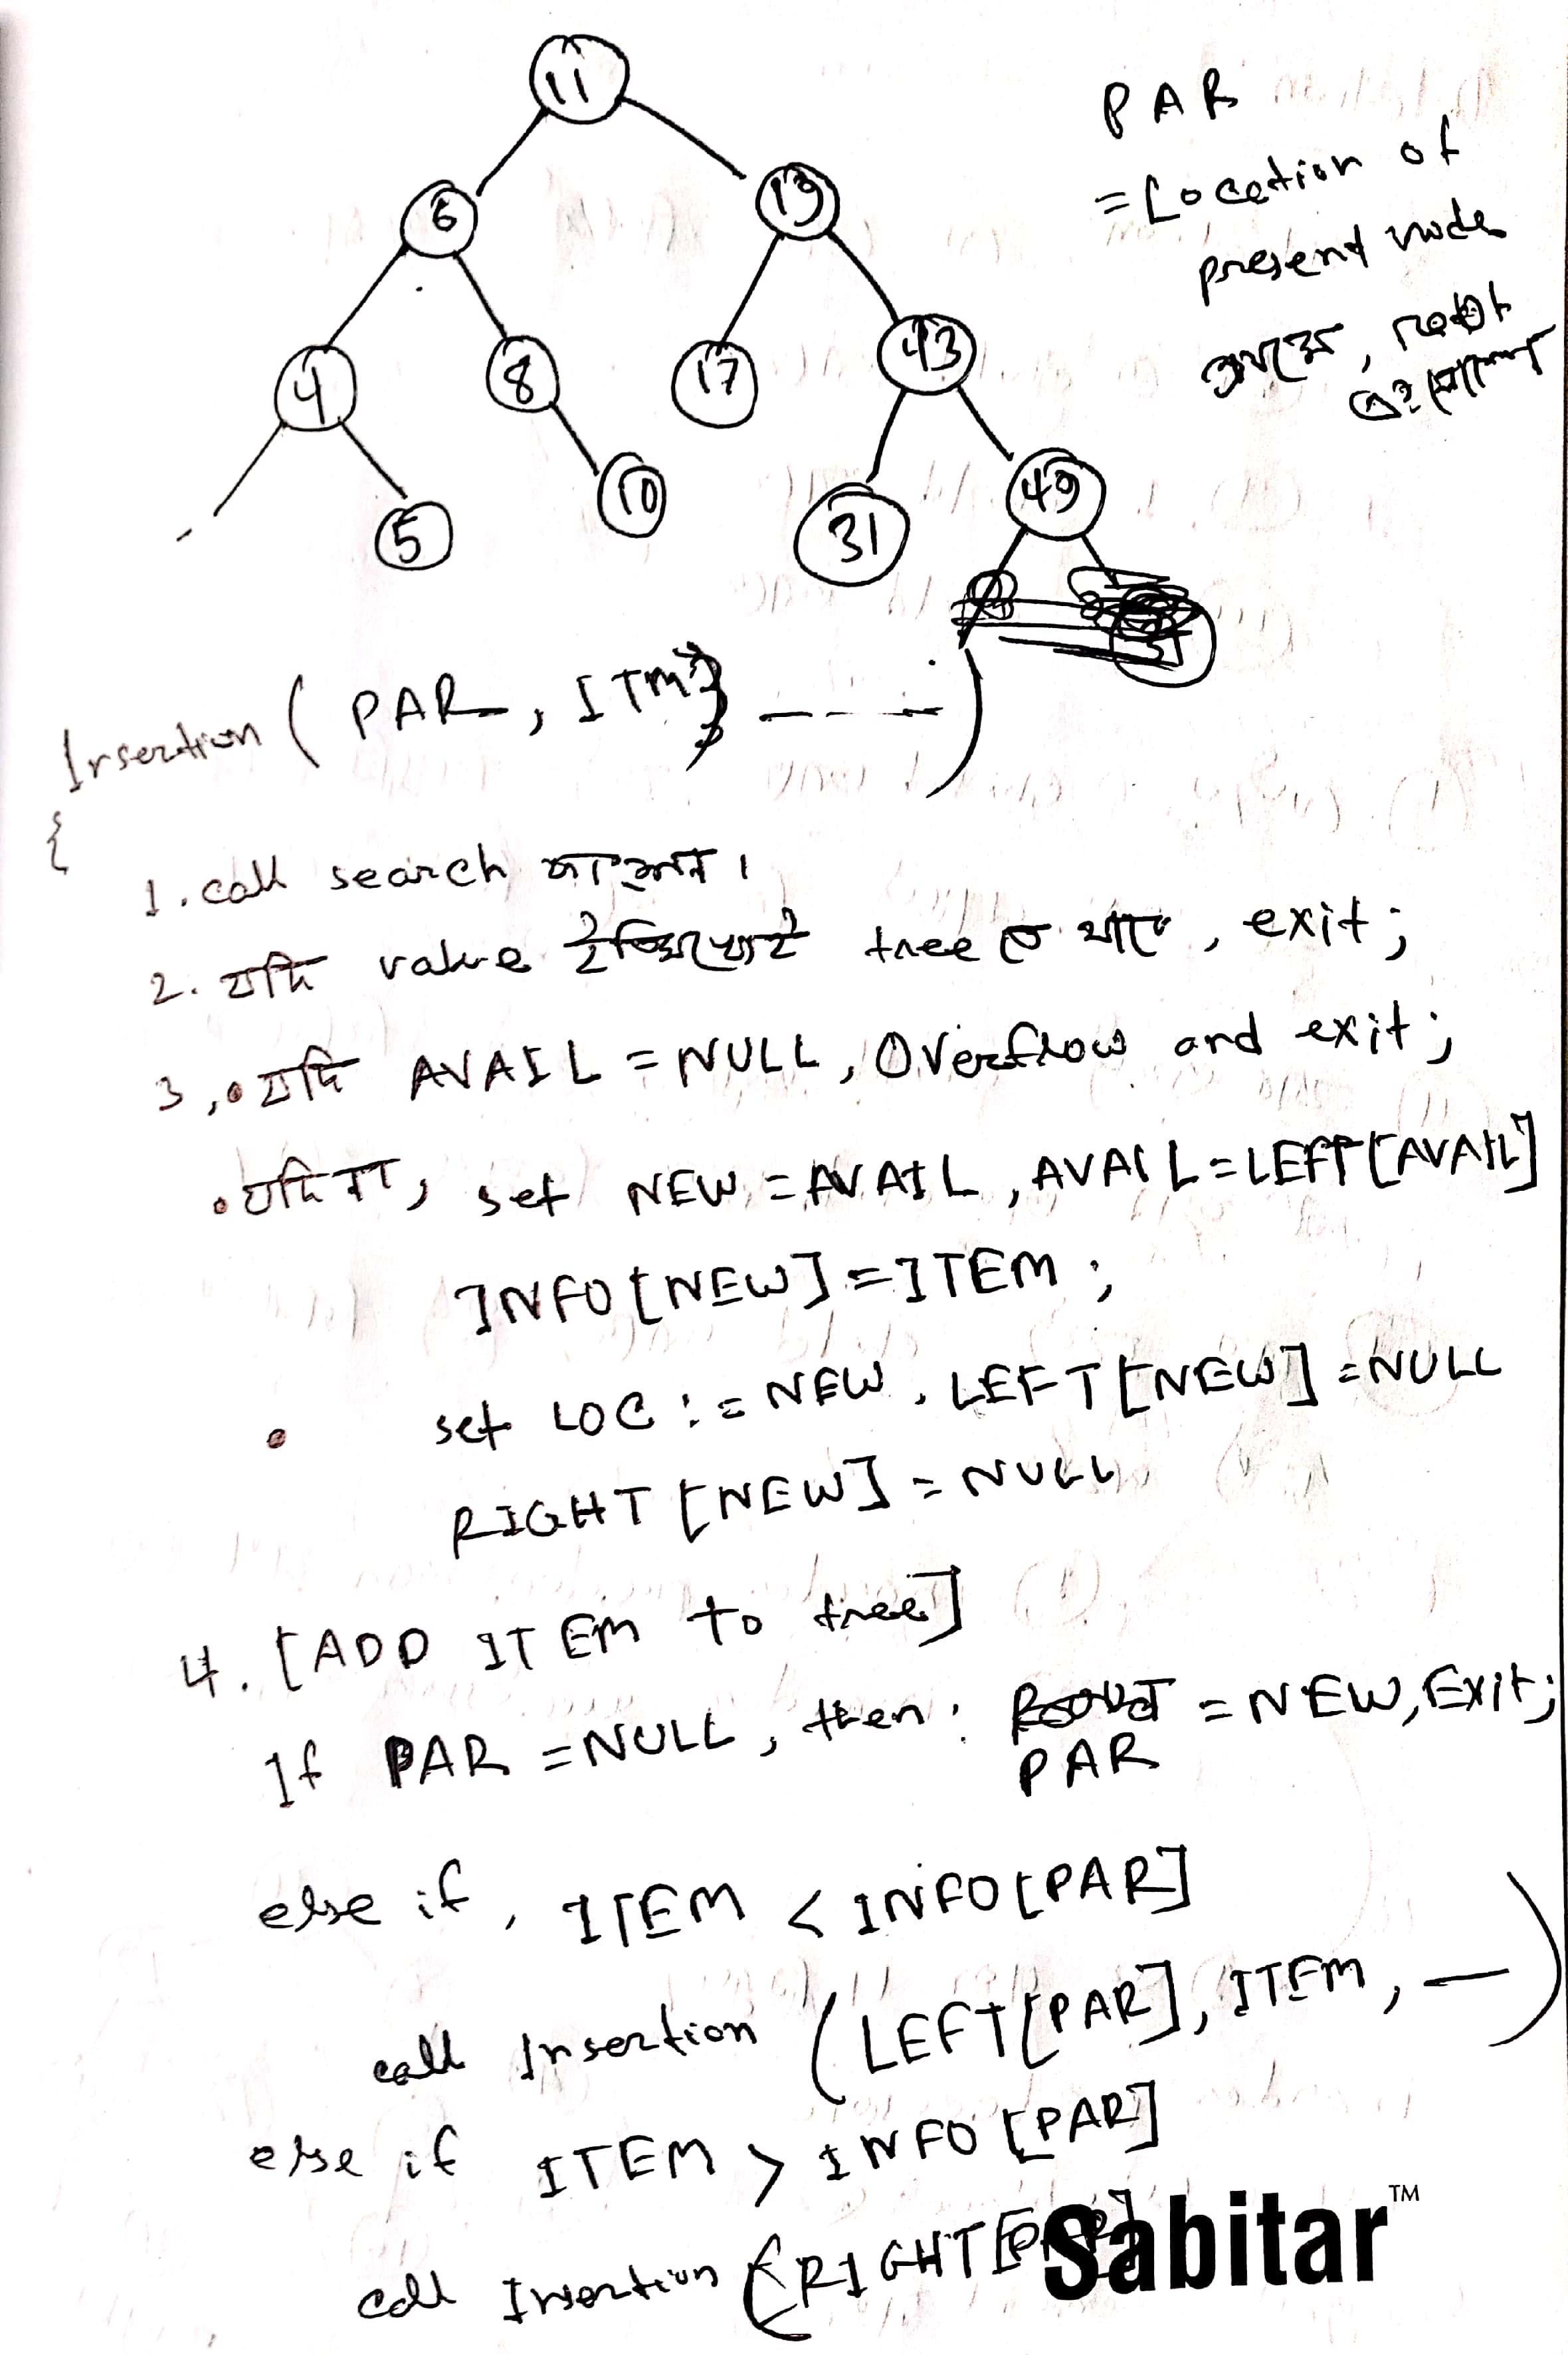 11
6
19
4
8
17
43
5
10
31
49
PAR
= Location of
present node
root
Insertion ( PAR, ITM - - - - )
{
1. call search
2. যদি value tree তে থাকে, exit;
3. যদি AVAIL = NULL, Overflow and exit;
. যদি না, set NEW = AVAIL, AVAIL = LEFT[AVAIL]
INFO[NEW] = ITEM ;
set LOC := NEW, LEFT[NEW] = NULL
RIGHT [NEW] = NULL
4. [ADD ITEM to tree]
If PAR = NULL, then : = NEW, Exit;
PAR
else if, ITEM < INFO[PAR]
call Insertion (LEFT[PAR], ITEM, — )
else if ITEM > INFO [PAR]
call Insertion (RIGHT[PAR]
Sabitar™